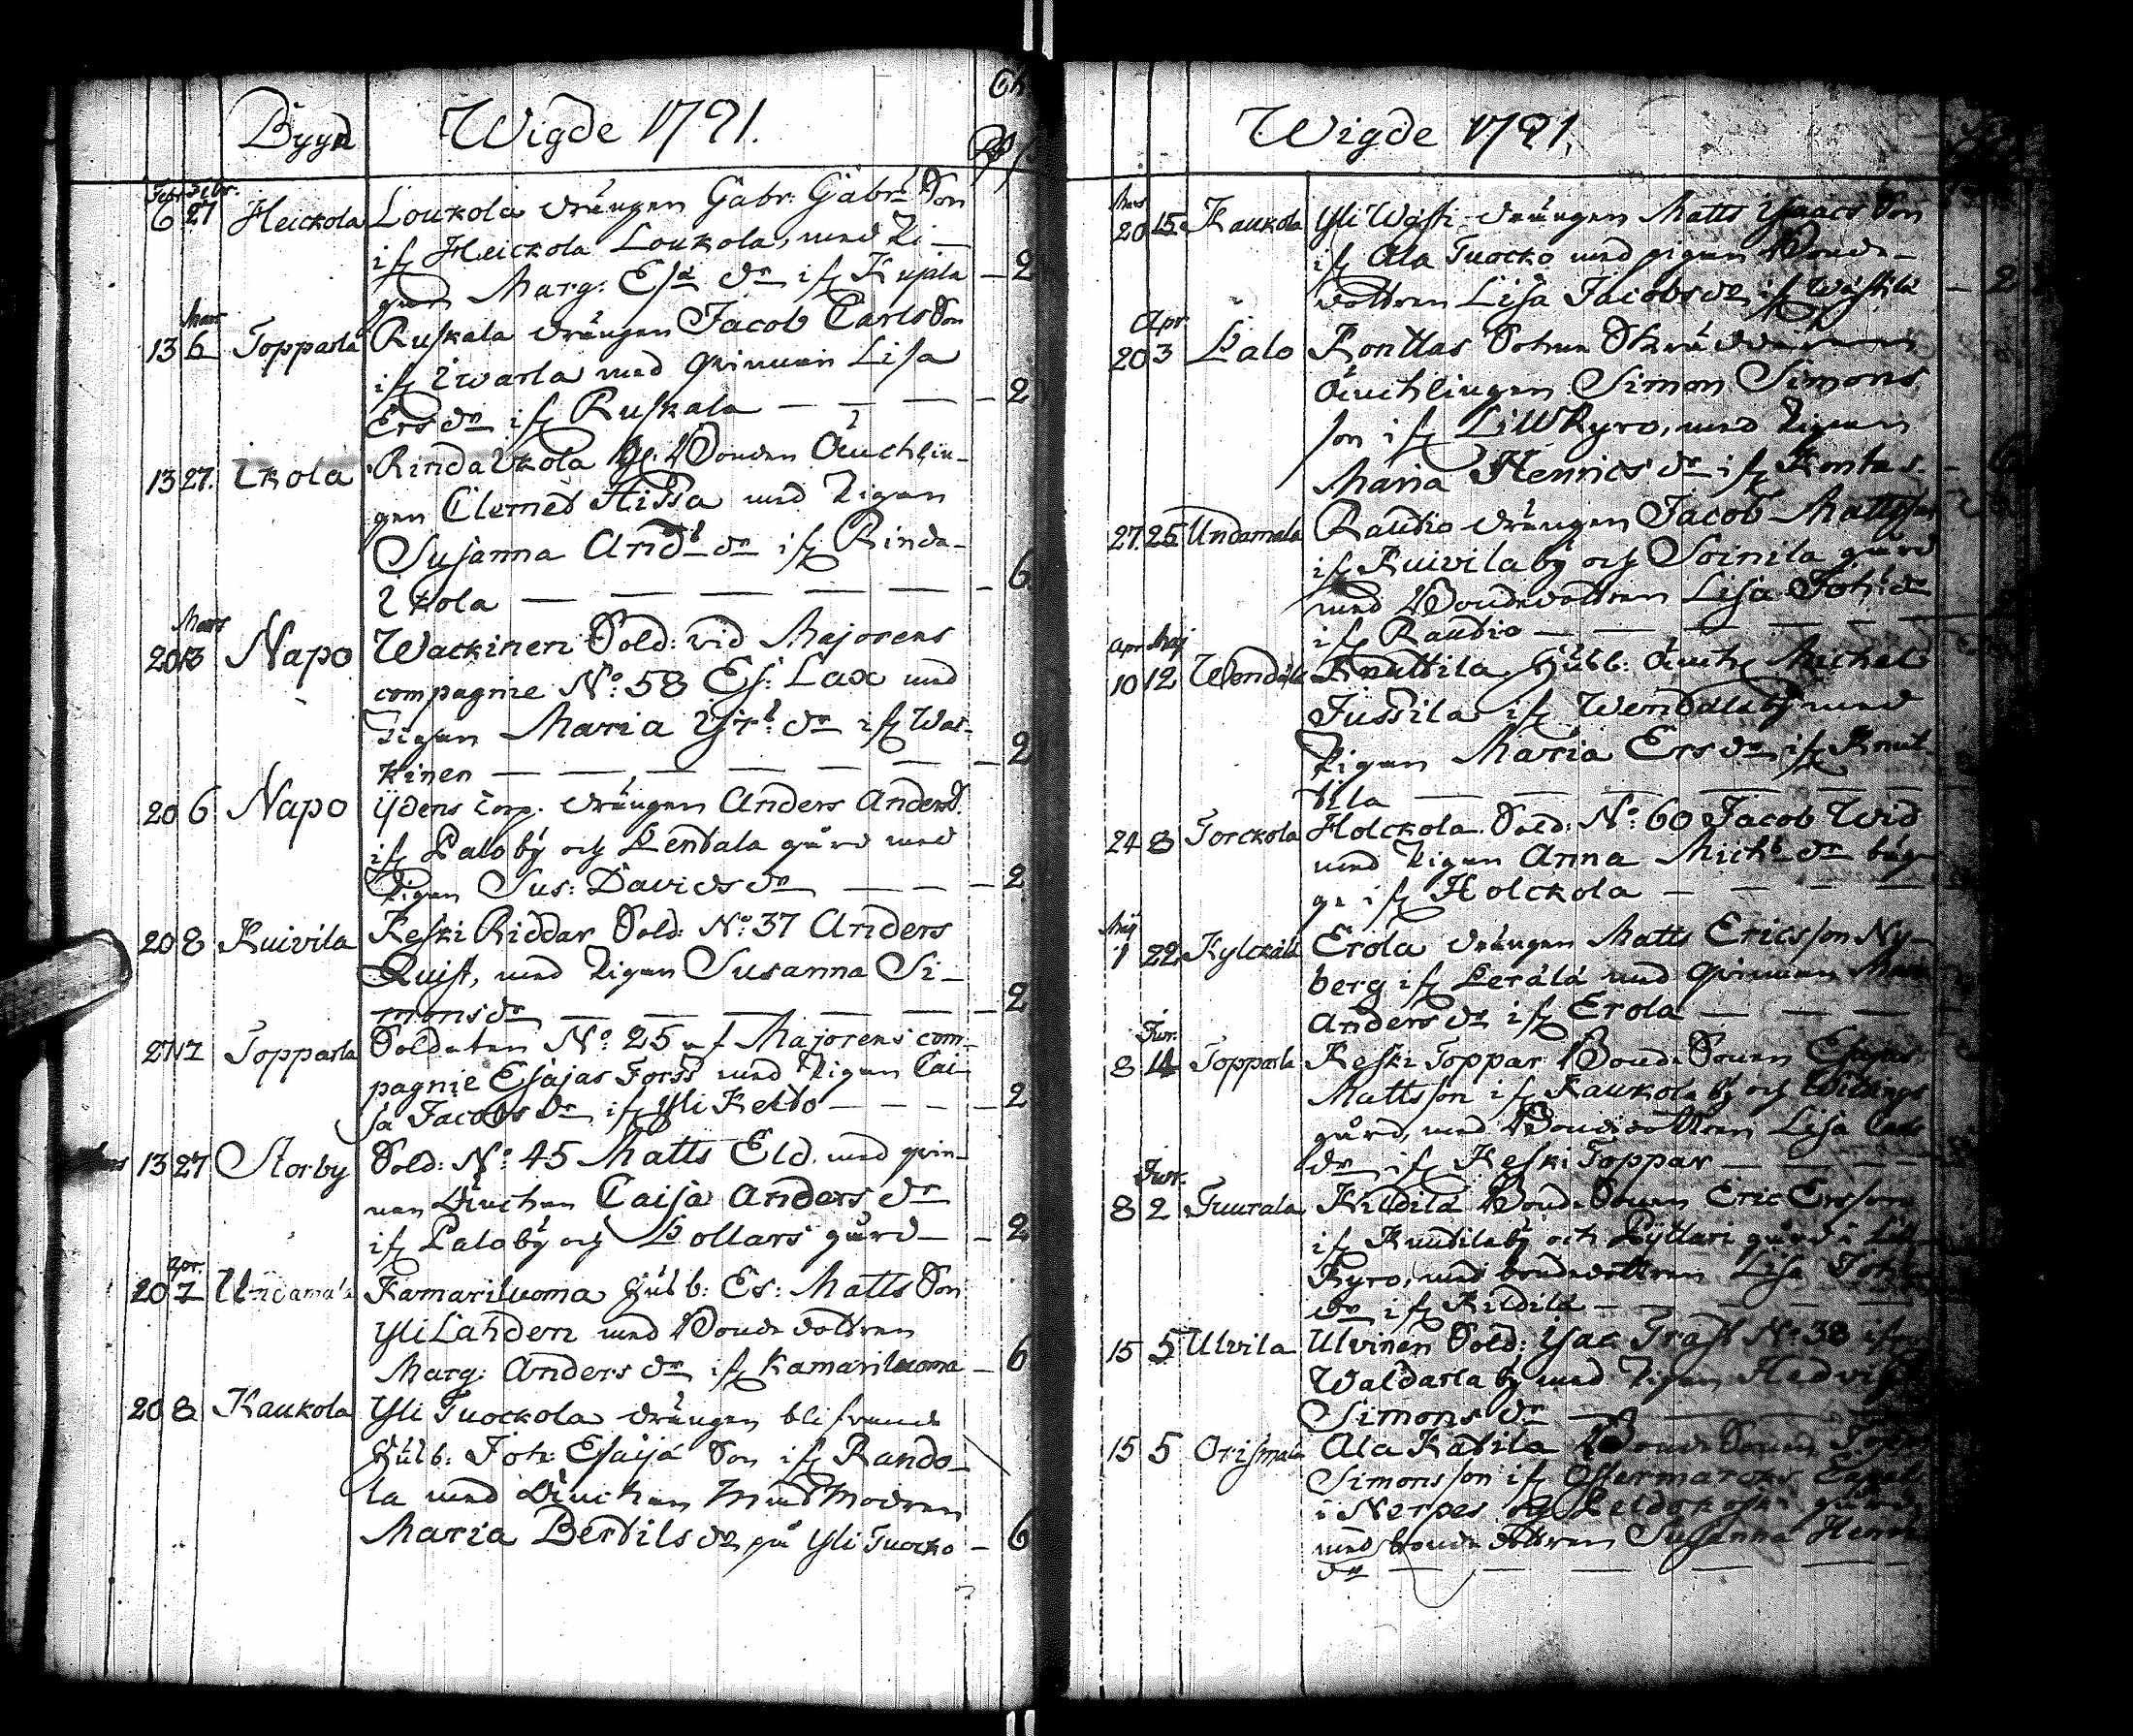 Byyn Wigde 1791.
Febr. Febr.
6 27 Heickola Loukola drängen Gabr: Gabr: Son
if Heickola Loukola, med Pi-
gan Marg: Esa dr if Kupla - 2
Mars
13 6 Topparla Ruskala drängen Jacob Carls Son
if Iwarla med qvinnan Lisa
Ers dr if Ruskala — — — 2
13 27. Ikola Rinda Ikola Bonden Änckhlin-
gen Clemet Hissa med Pigan
Susanna And: dr if Rinda-
Ikola — — — — — 6
Mars
20 13 Napo Wackinen Sold: vid Majorens
compagnie No: 58 Es: Lax med
Pigan Maria Yr: dr if Wac-
kinen — — — — — 2
20 6 Napo Ydens Torp. drängen Anders Anders S.
if Palo by och Pentala gård med
Pigan Sus: Davids dr — — 2
20 8 Kuivila Keski Riddar Sold: No: 37 Anders
Quist, med Pigan Susanna Si-
mons dr — — — — — 2
27 Topparla Soldaten No: 25 af Majorens com-
pagnie Esajas Forss med Pigan Cai-
sa Jacobs dr if Yli Keldo — — — 2
13 27 Storby Sold: No: 45 Matts Eld. med qvin-
nan Änckan Caisa Anders dr
if Palo by och Pollars gård — 2
Apr.
20 7 Undamala Kamariluoma Husb: Es: Matts Son
Yli Lahden med Bonde dottren
Marg: Anders dr if Kamariluoma - 6
20 8 Kaukola Yli Tuockola drängen blifvande
Husb: Joh: Esaija Son if Rando-
la med Änckan Matmodren
Maria Bertils dr på Yli Tuocko - 6
Wigde 1791.
Mars
20 15 Kaukola Yli Wästi drängen Matts Ysaacs Son
if Ala Tuocko med pigan Bonde-
dottren Lisa Jacobs dr if Wästilä — 2
Apr.
20 3 Palo Konttas Sohne
Änckhlingen Simon Simons
son if Lill Kyro, med Pigan
Maria Henrics dr if Kontas -
27 25 Undamala Raudio drängen Jacob Mattsson
if Kuivila by och Soinila gård
med Bondedottren Lisa Joh: dr
if Raudio — — — —
Apr Maj
10 12 Wendälä Knuttila Husb: Änck: Michel
Jussila if Wendälä by med
Pigan Maria Ers dr if Knut-
tila — — — — —
24 8 Torckola Holckola Sold: No: 60 Jacob Wid
med Pigan Anna Mich: dr båg-
ge if Holckola — — —
Maj
1 22 Kylckälä Erola drängen Matts Ericsson Ny-
berg if Perälä med qvinnan
Anders dr if Erola — — —
Jun.
8 14 Topparla Keski Toppar Bonde Sonen Esajas
Mattsson if Kaukola by och
gård, med Bondedottren Lisa
dr if Keski Toppar — — —
Jun.
8 2 Tuurala Kildilä Bonde Sonen Eric Ersson
if Kuudila by och Pyttari gård i Lill
Kyro, med bondedottren Lisa Joh:
dr if Kildilä — — —
15 5 Ulvila Ulvinen Sold: Ysac Trast No: 38 if
Waldarla by med Pigan Hedvig
Simons dr — —
15 5 Orismala Ala Katila Bonde Sonen
Simonsson if Offermarcks Capell
i Nerpes og Peldokoski gård,
med bonde dottren Susanna Henr:
dr — — — —